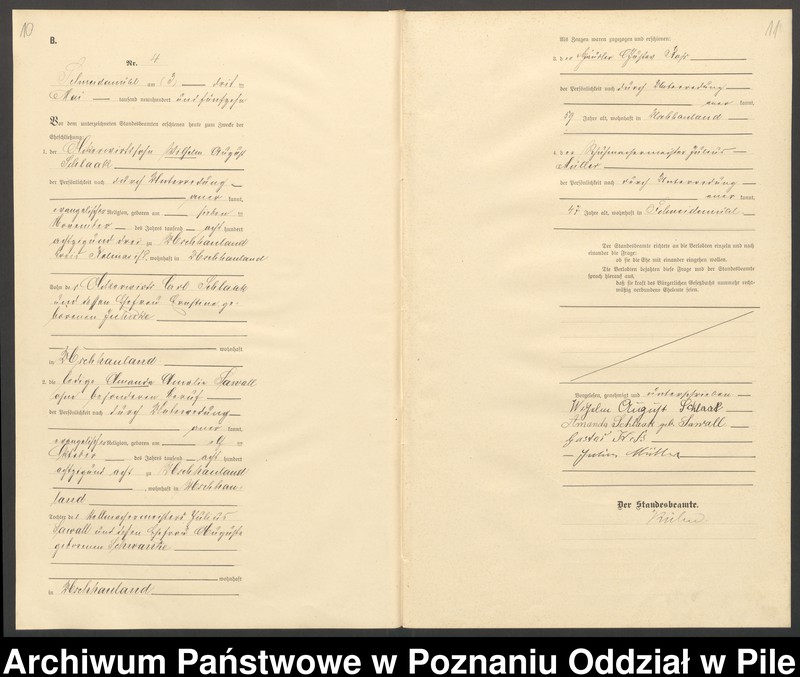 10
B.
Nr. 4
Schneidemühl am (3) dritten
Mai tausend neunhundert und fünfzehn
Vor dem unterzeichneten Standesbeamten erschienen heute zum Zwecke der
Eheschließung:
1. der Ackerwirtssohn Wilhelm August
Schlaak
der Persönlichkeit nach durch Unterredung
aner kannt,
evangelischer Religion, geboren am sieben ten
November des Jahres tausend acht hundert
achtzig und drei zu Uschhauland
Kreis Kolmar i/P., wohnhaft in Uschhauland
Sohn des Ackerwirts Carl Schlaak
und dessen Ehefrau Ernstine ge-
borenen
wohnhaft
in Uschhauland
2. die ledige Amanda Amalie Sawall
ohne besonderen Beruf
der Persönlichkeit nach durch Unterredung
aner kannt,
evangelischer Religion, geboren am elf ten
Oktober des Jahres tausend acht hundert
achtzig und acht zu Uschhauland
, wohnhaft in Uschhau-
land
Tochter des Stellmachermeisters Julius
Sawall und dessen Ehefrau Auguste
geborenen Schwanke
wohnhaft
in Uschhauland
11
Als Zeugen waren zugezogen und erschienen:
3. der Häusler Gustav
der Persönlichkeit nach durch Unterredung
aner kannt,
59 Jahre alt, wohnhaft in Uschhauland
4. der Schuhmachermeister Julius
Müller
der Persönlichkeit nach durch Unterredung
aner kannt,
47 Jahre alt, wohnhaft in Schneidemühl
Der Standesbeamte richtete an die Verlobten einzeln und nach
einander die Frage:
ob sie die Ehe mit einander eingehen wollen.
Die Verlobten bejahten diese Frage und der Standesbeamte
sprach hierauf aus,
daß sie kraft des Bürgerlichen Gesetzbuchs nunmehr recht-
mäßig verbundene Eheleute seien.
Vorgelesen, genehmigt und unterschrieben
Wilhelm August Schlaak
Amanda Schlaak geb. Sawall
Gustav
Julius Müller
Der Standesbeamte.
Archiwum Państwowe w Poznaniu Oddział w Pile